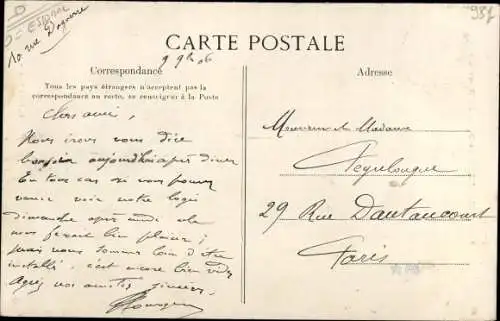 10 rue Daguerre
CARTE POSTALE
Correspondance
9 9bre 06
Tous les pays étrangers n'acceptent pas la
correspondance au recto, se renseigner à la Poste
Chers amis,
Nous irons vous dire
bonjour aujourd'hui après diner
En tous cas si vous pouvez
venir voir notre logis
dimanche après midi
nous ferait bien plaisir;
mais nous sommes loin d'être
installés, c'est encore bien vide
Agréez nos amitiés
Adresse
Monsieur et Madame
Peyrelongue
29 Rue Dautancourt
Paris